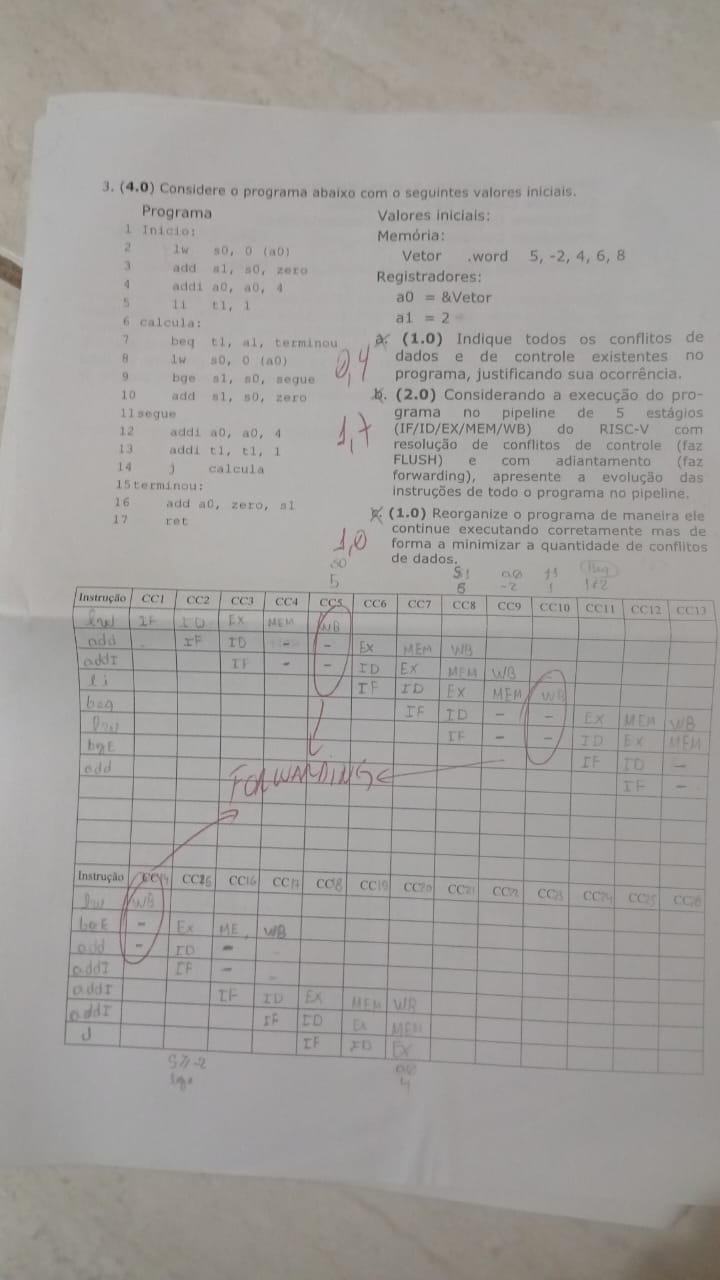 3. (4.0) Considere o programa abaixo com o seguintes valores iniciais.
Programa
1 Inicio:
2 lw s0, 0 (a0)
3 add s1, s0, zero
4 addi a0, a0, 4
5 li t1, 1
6 calcula:
7 beq t1, a1, terminou
8 lw s0, 0 (a0)
9 bge s1, s0, segue
10 add s1, s0, zero
11 segue
12 addi a0, a0, 4
13 addi t1, t1, 1
14 j calcula
15 terminou:
16 add a0, zero, s1
17 ret
Valores iniciais:
Memória:
Vetor .word 5, -2, 4, 6, 8
Registradores:
a0 = &Vetor
a1 = 2
a. (1.0) Indique todos os conflitos de
dados e de controle existentes no
programa, justificando sua ocorrência.
0,4
b. (2.0) Considerando a execução do pro-
grama no pipeline de 5 estágios
(IF/ID/EX/MEM/WB) do RISC-V com
resolução de conflitos de controle (faz
FLUSH) e com adiantamento (faz
forwarding), apresente a evolução das
instruções de todo o programa no pipeline.
1,7
(1.0) Reorganize o programa de maneira ele
continue executando corretamente mas de
forma a minimizar a quantidade de conflitos
de dados.
1,0
s0 S1 a0
5 5 -2 1
Instrução CC1 CC2 CC3 CC4 CC5 CC6 CC7 CC8 CC9 CC10 CC11 CC12 CC13
lw IF ID EX MEM WB
add IF ID - - EX MEM WB
addI IF - - ID EX MEM WB
li IF ID EX MEM WB
beq IF ID - - EX MEM WB
lw IF - - ID EX MEM
bgE IF ID -
add IF -
FORWARDING
Instrução CC14 CC15 CC16 CC17 CC18 CC19 CC20 CC21 CC22 CC23 CC24 CC25 CC26
lw WB
bgE - EX ME WB
add - ID -
addI IF -
addI IF ID EX MEM WB
addI IF ID EX MEM
J IF ID EX
a0
4